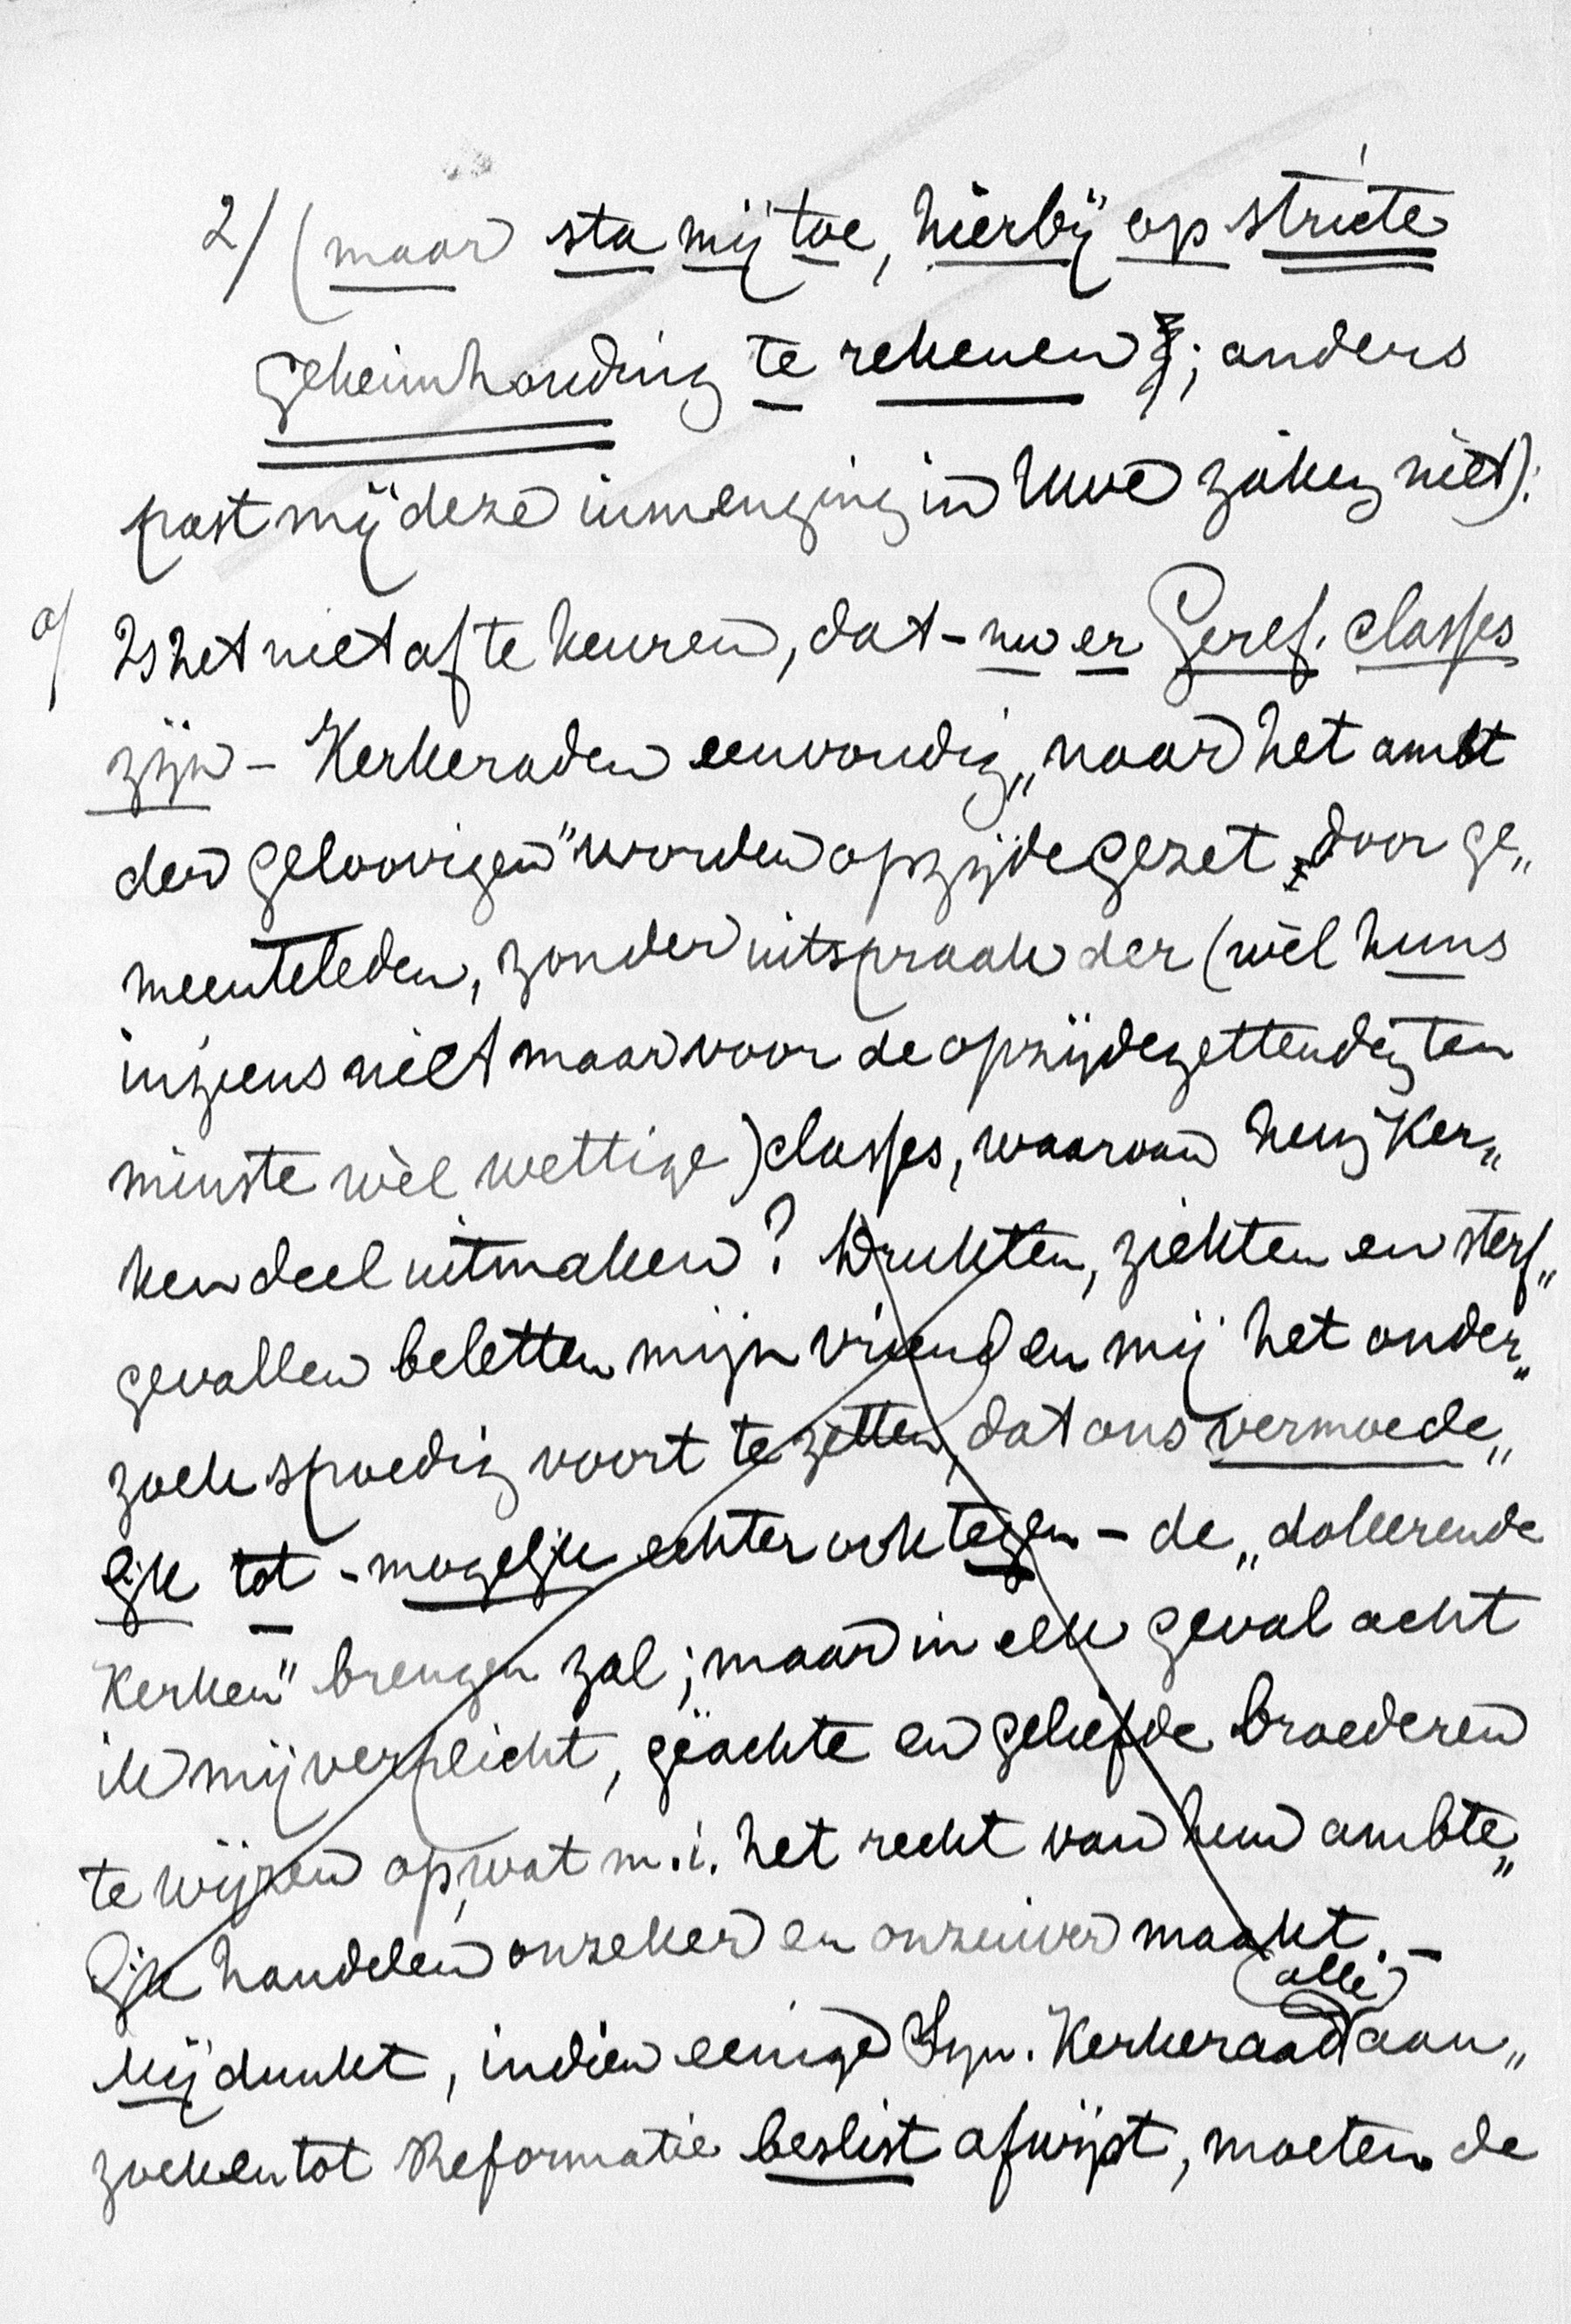 2/ (maar sta mij toe, hierbij op stricte
geheimhouding te rekenen; anders
past mij deze inmenging in Uwe zaken niet):
a/ Is het niet af te keuren, dat - nu er Geref. classes
zijn - Kerkeraden eenvoudig „naar het ambt
der geloovigen” worden opzijdegezet, door ge„
meenteleden, zonder uitspraak der (wèl huns
inziens niet maar voor de opzijdezettenden ten
minste wèl wettige) classes, waarvan hun Ker„
ken deel uitmaken? Drukten, ziekten en sterf„
gevallen beletten mijn vriend en mij het onder„
zoek spoedig voort te zetten, dat ons vermoede„
lijk tot - mogelijk echter ook tegen - de „doleerende
Kerken” brengen zal; maar in elk geval acht
ik mij verplicht, geachte en geliefde broederen
te wijzen op, wat m.i. het recht van hun ambte„
lijk handelen onzeker en onzuiver maakt. -
Mij dunkt, indien eenige Syn. Kerkeraad (alle) aan„
zoeken tot Reformatie beslist afwijst, moeten de